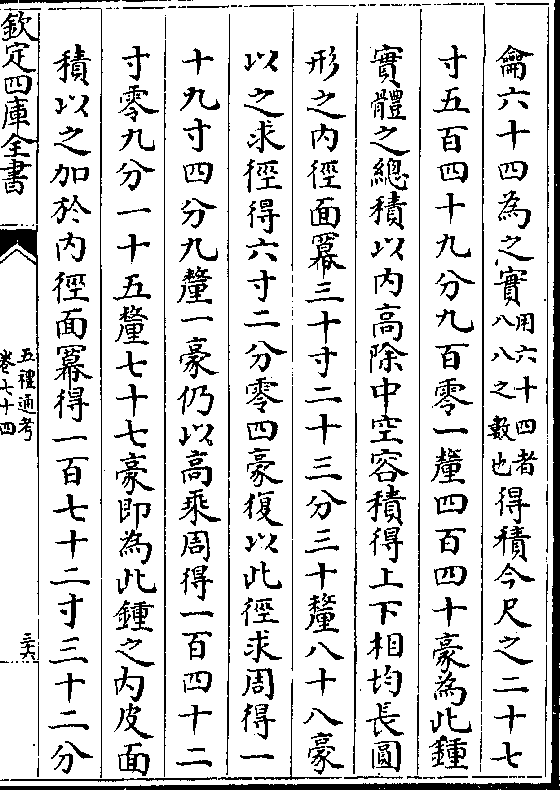 龠六十四為之實用六十四者八八之數也得積今尺之二十七
寸五百四十九分九百零一釐四百四十豪為此鍾
實體之總積以内高除中空容積得上下相均長圓
形之内徑面冪三十寸二十三分三十釐八十八豪
以之求徑得六寸二分零四豪復以此徑求周得一
十九寸四分九釐一豪仍以高乘周得一百四十二
寸零九分一十五釐七十七豪即為此鍾之内皮面
積以之加於内徑面冪得一百七十二寸三十二分
欽定四庫全書
五禮通考
卷七十四
三六